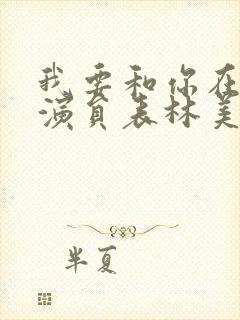 我要和你在
演员表林美
半夏